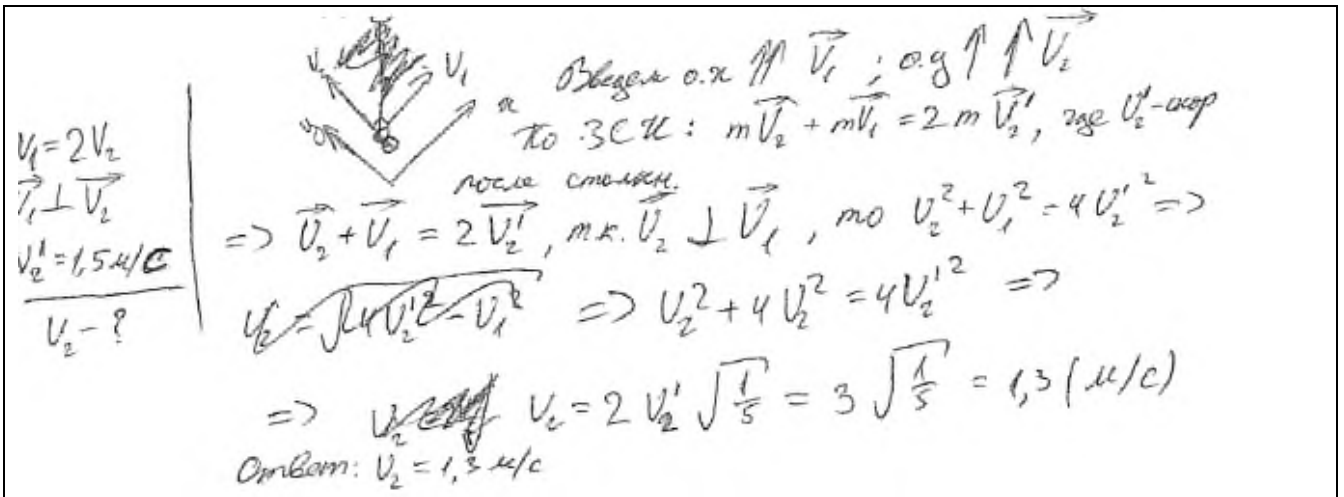 V₁ = 2V₂
V₁ ⊥ V₂
V₂' = 1,5 м/с
V₂ - ?
V₁
x
Введем о.x ↑↑ V₁ ; о.y ↑↑ V₂
По ЗСИ: mV₂ + mV₁ = 2mV₂', где V₂' - скор
после столкн.
=> V₂ + V₁ = 2V₂', т.к. V₂ ⊥ V₁, то V₂² + V₁² = 4V₂'² =>
=> V₂² + 4V₂² = 4V₂'² =>
=> V₂ = 2V₂' √(1/5) = 3 √(1/5) = 1,3 (м/с)
Ответ: V₂ = 1,3 м/с